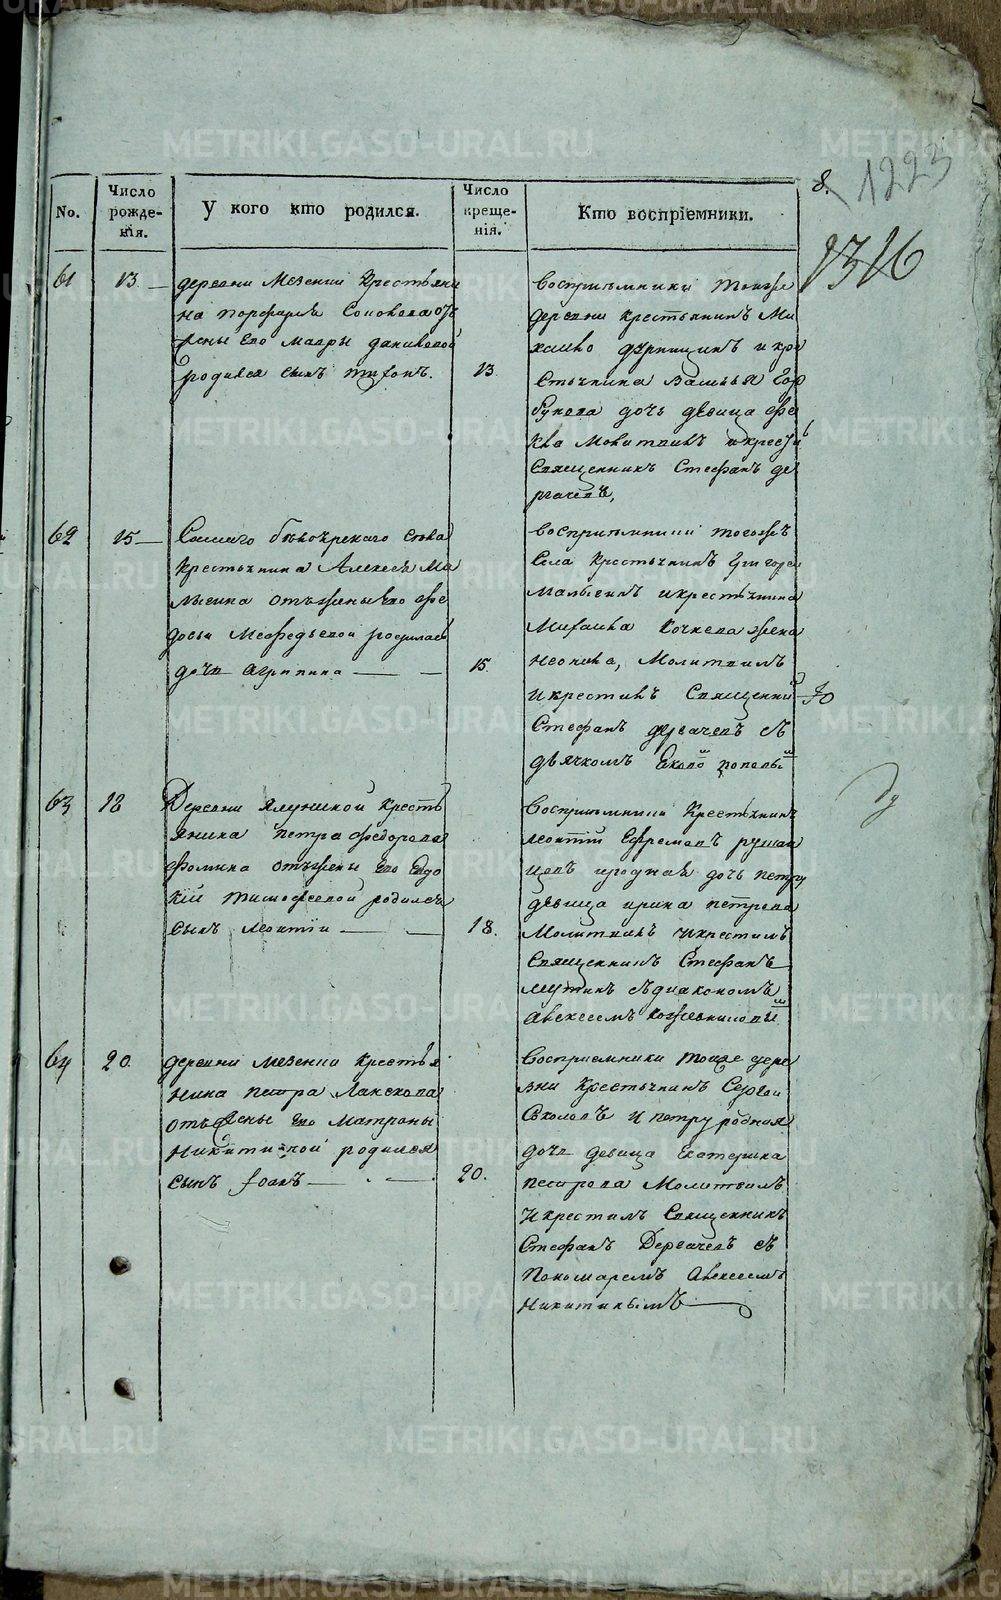 8. 1223
1316
No.
Число рожде-нія.
У кого кто родился.
Число креще-нія.
Кто воспріемники.
61
13
деревни Мезенки Крестьяни
на Порфирья Соковова отъ
жены Его Мавры даниловой
родился сынъ тихонъ.
13
воспріемники тоиже
деревни крестьянинъ Ми
хайло и кре
стьянина Василья Гор
бунова дочь девица Фе
кла Молитвилъ икрестилъ
Священникъ Стефанъ де
ргачевъ,
62
15
Самаго села
Крестьянина Алексея Ма
лыгина отъжены Его Фе
досьи Мефодьевой родилась
дочь Агрипина
15.
воспріемники тогожъ
Села Крестьянинъ Григорей
икрестьянина
Михаила жена
Молитвилъ
икрестилъ Священни
Стефанъ дергачевъ съ
дьячкомъ поповы
63
18
Деревни Ялуниной Кресть
янина Петра Федорова
Фомина отъжены Его Евдо
кіи тимофеевой родился
сынъ леонтій
18.
Воспріемники Крестьянинъ
леонтій Ефремовъ
цовъ иродная дочь петру
девица ирина петрова
Молитвилъ икрестилъ
Священникъ Стефанъ
съдиакономъ
Алексеемъ
64
20.
деревни Мезенки Крестья
нина Петра
отъжены Его Матроны
Никитиной родился
сынъ Іоанъ
20.
Воспріемники тоиже дере
вни Крестьянинъ Сергей
Соколовъ и петру родная
дочь девица Екатерина
петрова Молитвилъ
икрестилъ Священникъ
Стефанъ Дергачевъ съ
Пономаремъ Алексеемъ
Никитинымъ
METRIKI.GASO-URAL.RU